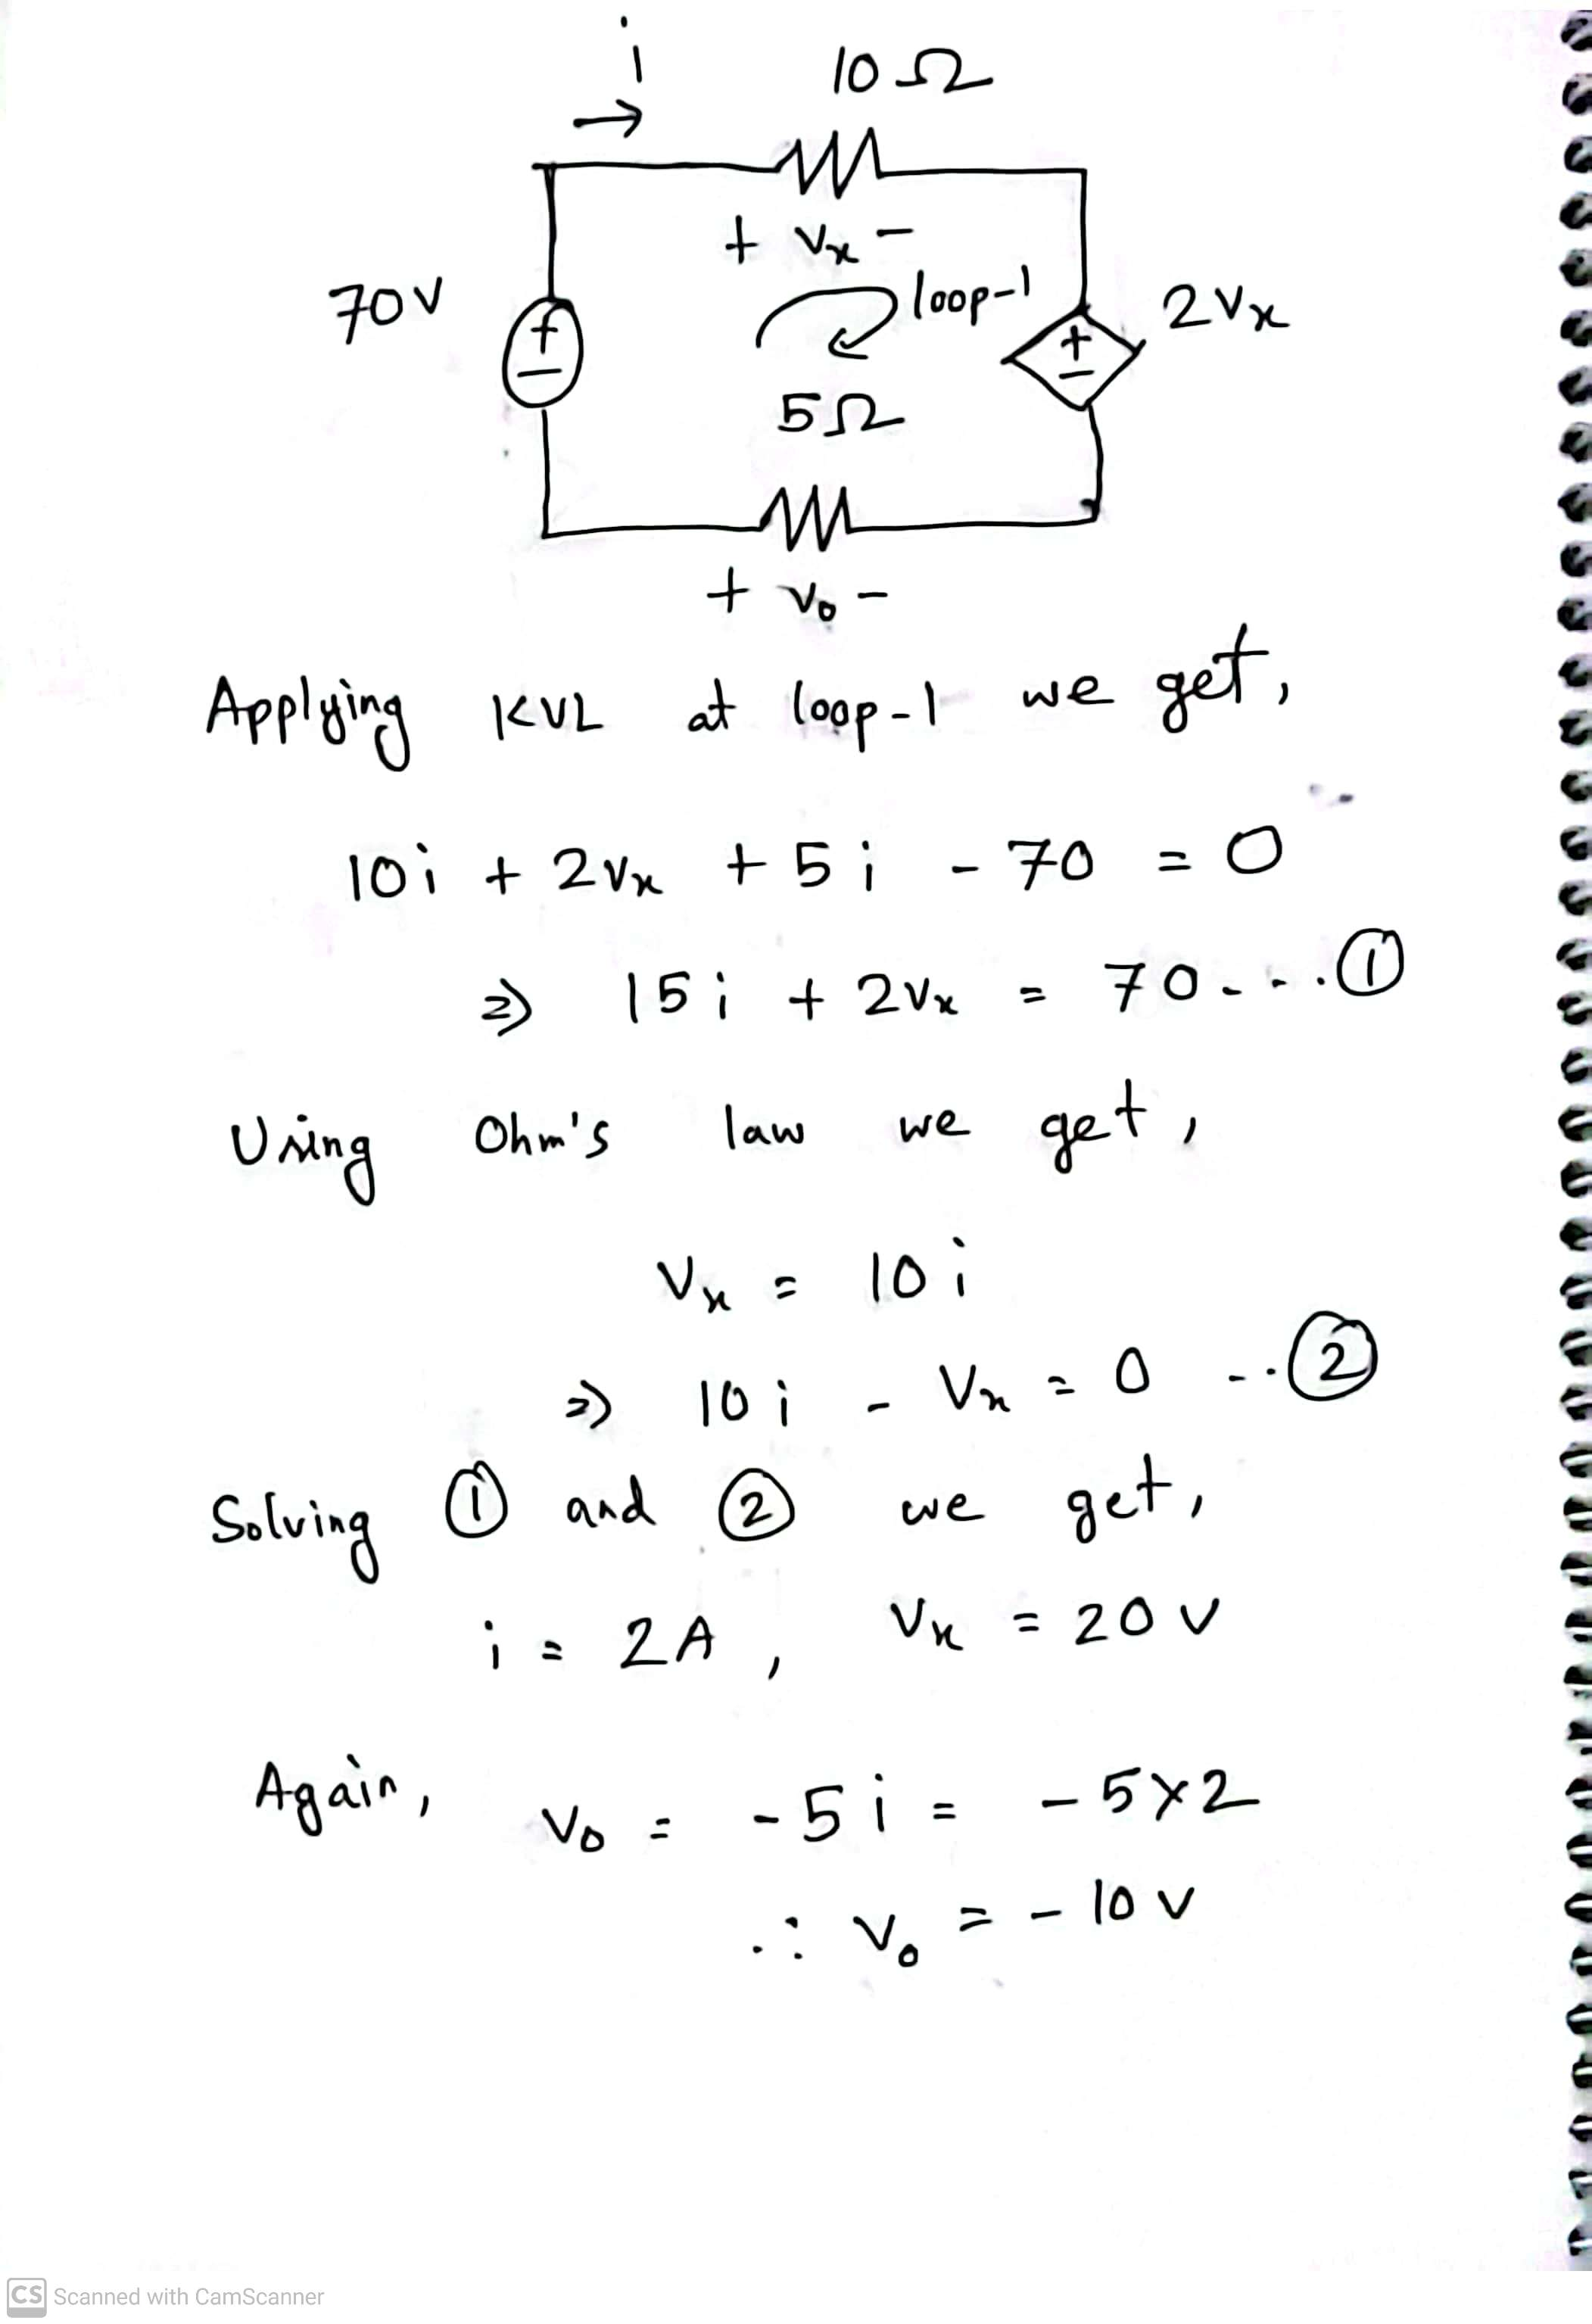 i
→
10 Ω
+ Vx −
70V
loop-1
2Vx
+
−
+
−
5Ω
+ V₀ −
Applying KVL at loop-1 we get,
10i + 2Vx + 5i - 70 = 0
⇒ 15i + 2Vx = 70 - - . ①
Using Ohm's law we get,
Vx = 10i
⇒ 10i - Vx = 0 - - . ②
Solving ① and ② we get,
i = 2A , Vx = 20V
Again, V₀ = -5i = -5×2
∴ V₀ = -10V
CS Scanned with CamScanner